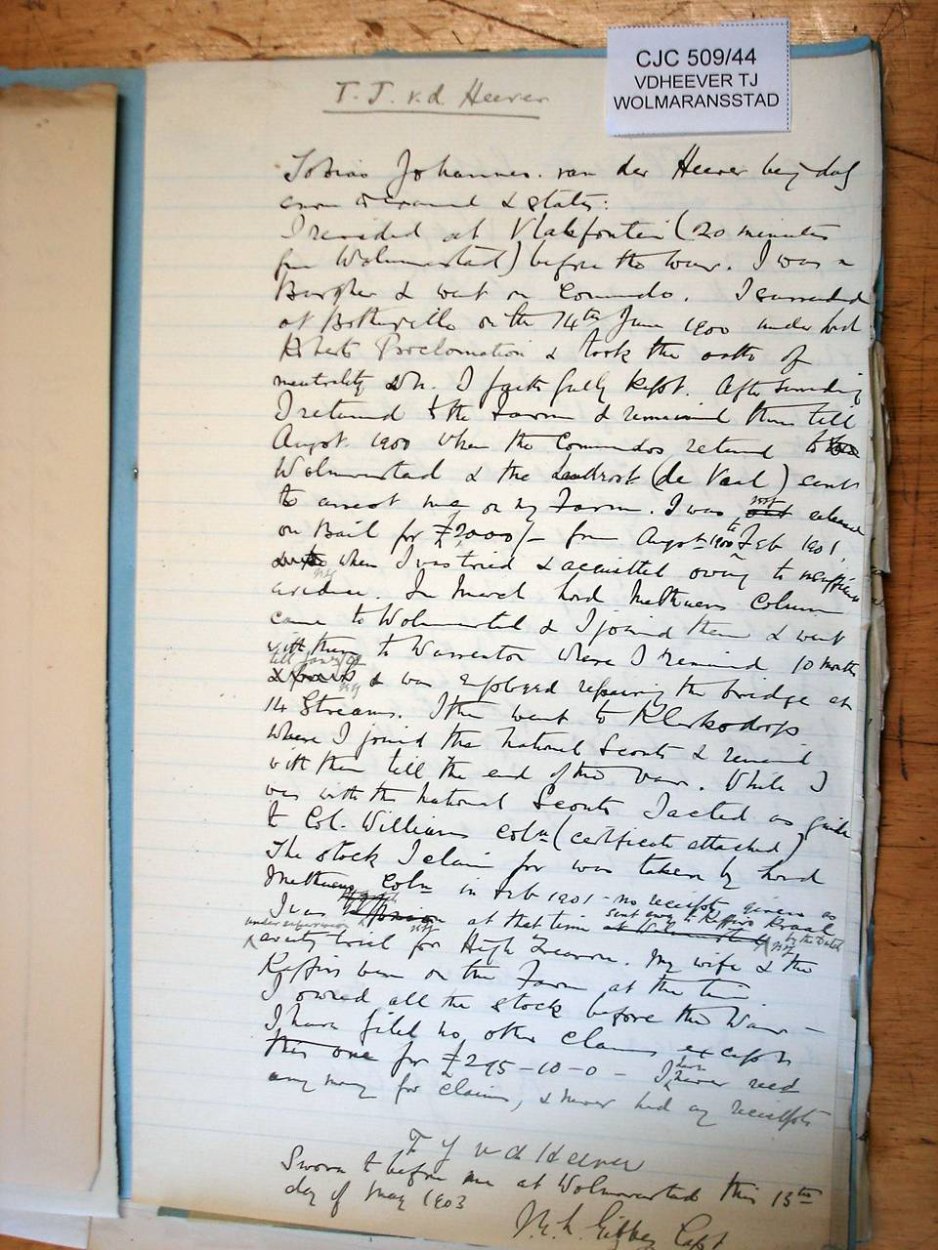 CJC 509/44
VDHEEVER TJ
WOLMARANSSTAD
T. J. v.d Heever
Tobias Johannes van der Heever being duly
sworn & states:
I resided at Vlakfontein (20 minutes
from Wolmarnstad) before the war. I was a
Burgher & went on Commando. I surrendered
at Bothaville on the 14th June 1900 under Lord
Roberts Proclamation & took the oath of
neutrality wh. I faithfully kept. After surrendering
I returned to the Farm & remained there till
August 1900 when the Commandos returned to
Wolmarnstad & the Landrost (de Vaal) sent
to arrest me on my Farm. I was not released
on Bail for £2000/- from August 1900 to Feb 1901.
when I was tried & acquitted owing to insufficient
evidence. In March Lord Methuens Column
came to Wolmarnstad & I joined them & went
with them to Warrenton where I remained 10 months
till Jan & was employed repairing the bridge at
14 Streams. I then went to Klerksdorp
where I joined the National Scouts & remained
with them till the end of the War. While I
was with the National Scouts I acted as guide
to Col. Williams Coln (certificate attached)
The stock I claim for was taken by Lord
Methuens Coln in Feb 1901 - no receipts given as
I was at that time sent away to Kaffir Kraal by the Dutch
under supervision awaiting trial for High Treason. My wife & the
Kaffirs were on the Farm at the time.
I owned all the stock before the War -
I have filed no other claims except
this one for £295-10-0 - I have never recd
any money for claims, & never had any receipts
T J v d Heever
Sworn to before me at Wolmarnstad this 13th
day of May 1903
Capt